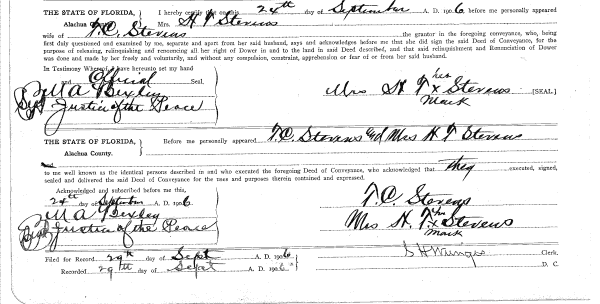 THE STATE OF FLORIDA, I hereby certify that on this 24th day of September A. D. 1906 before me personally appeared
Alachua County. Mrs. H T Stevens
wife of T. C. Stevens the grantor in the foregoing conveyance, who, being
first duly questioned and examined by me, separate and apart from her said husband, says and acknowledges before me that she did sign the said Deed of Conveyance, for the
purpose of releasing, relinquishing and renouncing all her right of Dower in and to the land in said Deed described, and that said relinquishment and Renunciation of Dower
was done and made by her freely and voluntarily, and without any compulsion, constraint, apprehension or fear of or from her said husband.
In Testimony Whereof, I have hereunto set my hand
and Official Seal.
M A Bixley
Justice of the Peace
his
Mrs H T x Stevens [SEAL]
Mark
THE STATE OF FLORIDA, Before me personally appeared T. C. Stevens and Mrs H T Stevens
Alachua County.
to me well known as the identical persons described in and who executed the foregoing Deed of Conveyance, who acknowledged that they executed, signed,
sealed and delivered the said Deed of Conveyance for the uses and purposes therein contained and expressed.
Acknowledged and subscribed before me this,
24th day of September 1906.
M A Bixley
Justice of the Peace
T. C. Stevens
Mrs H. T x Stevens
Mark
Filed for Record 29th day of Sept A. D. 1906
Recorded 29th day of Sept 1906
Clerk.
D. C.